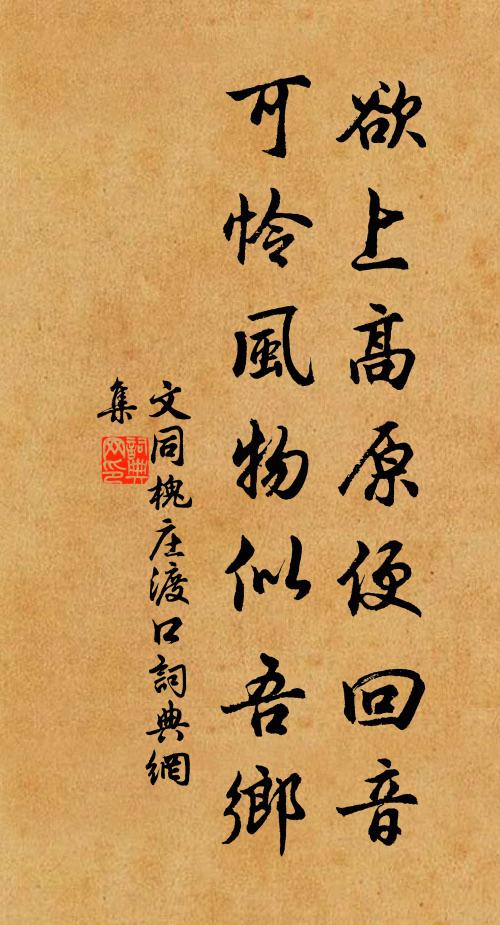 欲上高原便回音
可怜風物似吾鄉
文同槐庄渡口詞典網
集
詞典網印